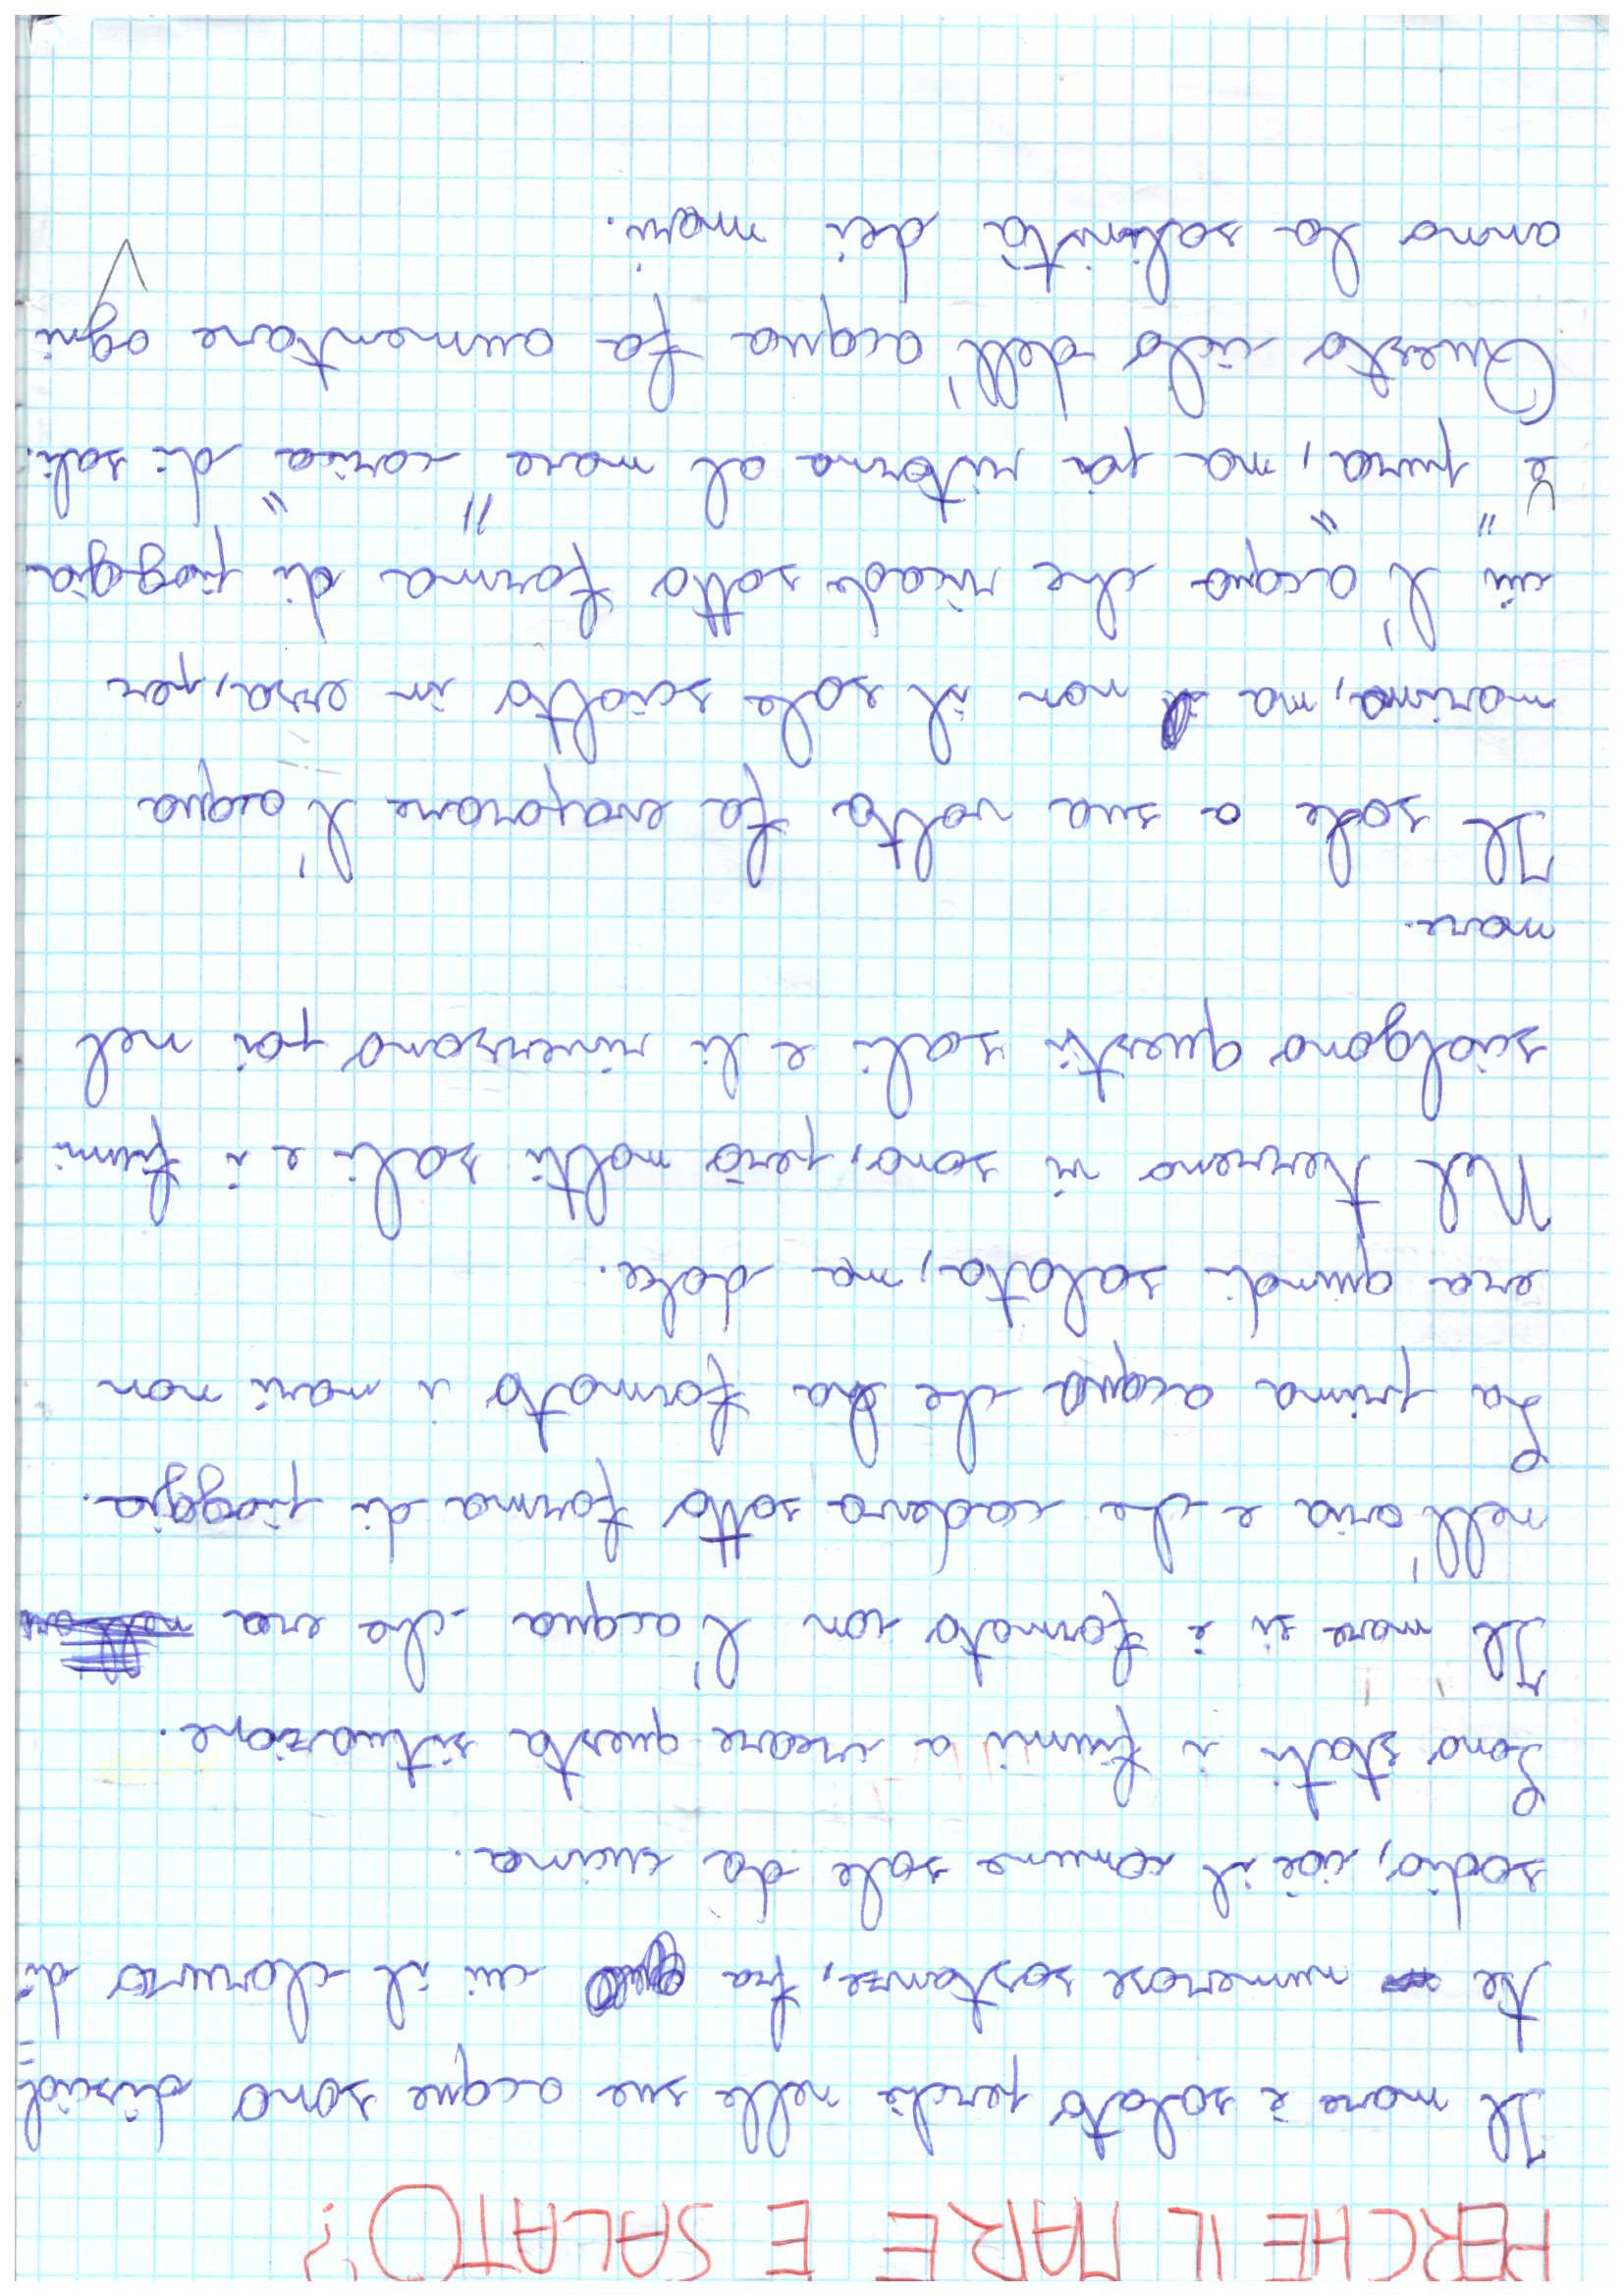 PERCHE IL MARE E SALATO?
Il mare è salato perchè nelle sue acque sono disciol=
te numerose sostanze, fra cui il cloruro di
sodio, cioè il comune sale da cucina.
Sono stati i fiumi a creare questa situazione.
Il mare si è formato con l'acqua che era
nell'aria e che cadeva sotto forma di pioggia.
La prima acqua che ha formato i mari non
era quindi salata, ma dolce.
Nel terreno vi sono, però molti sali e i fiumi
sciolgono questi sali e li riversano poi nel
mare.
Il sole a sua volta fa evaporare l'acqua
marina, ma non il sale sciolto in essa, per
cui l'acqua che ricade sotto forma di pioggia
è "pura", ma poi ritorna al mare "carica" di sali.
Questo ciclo dell'acqua fa aumentare ogni
anno la salinità dei mari.